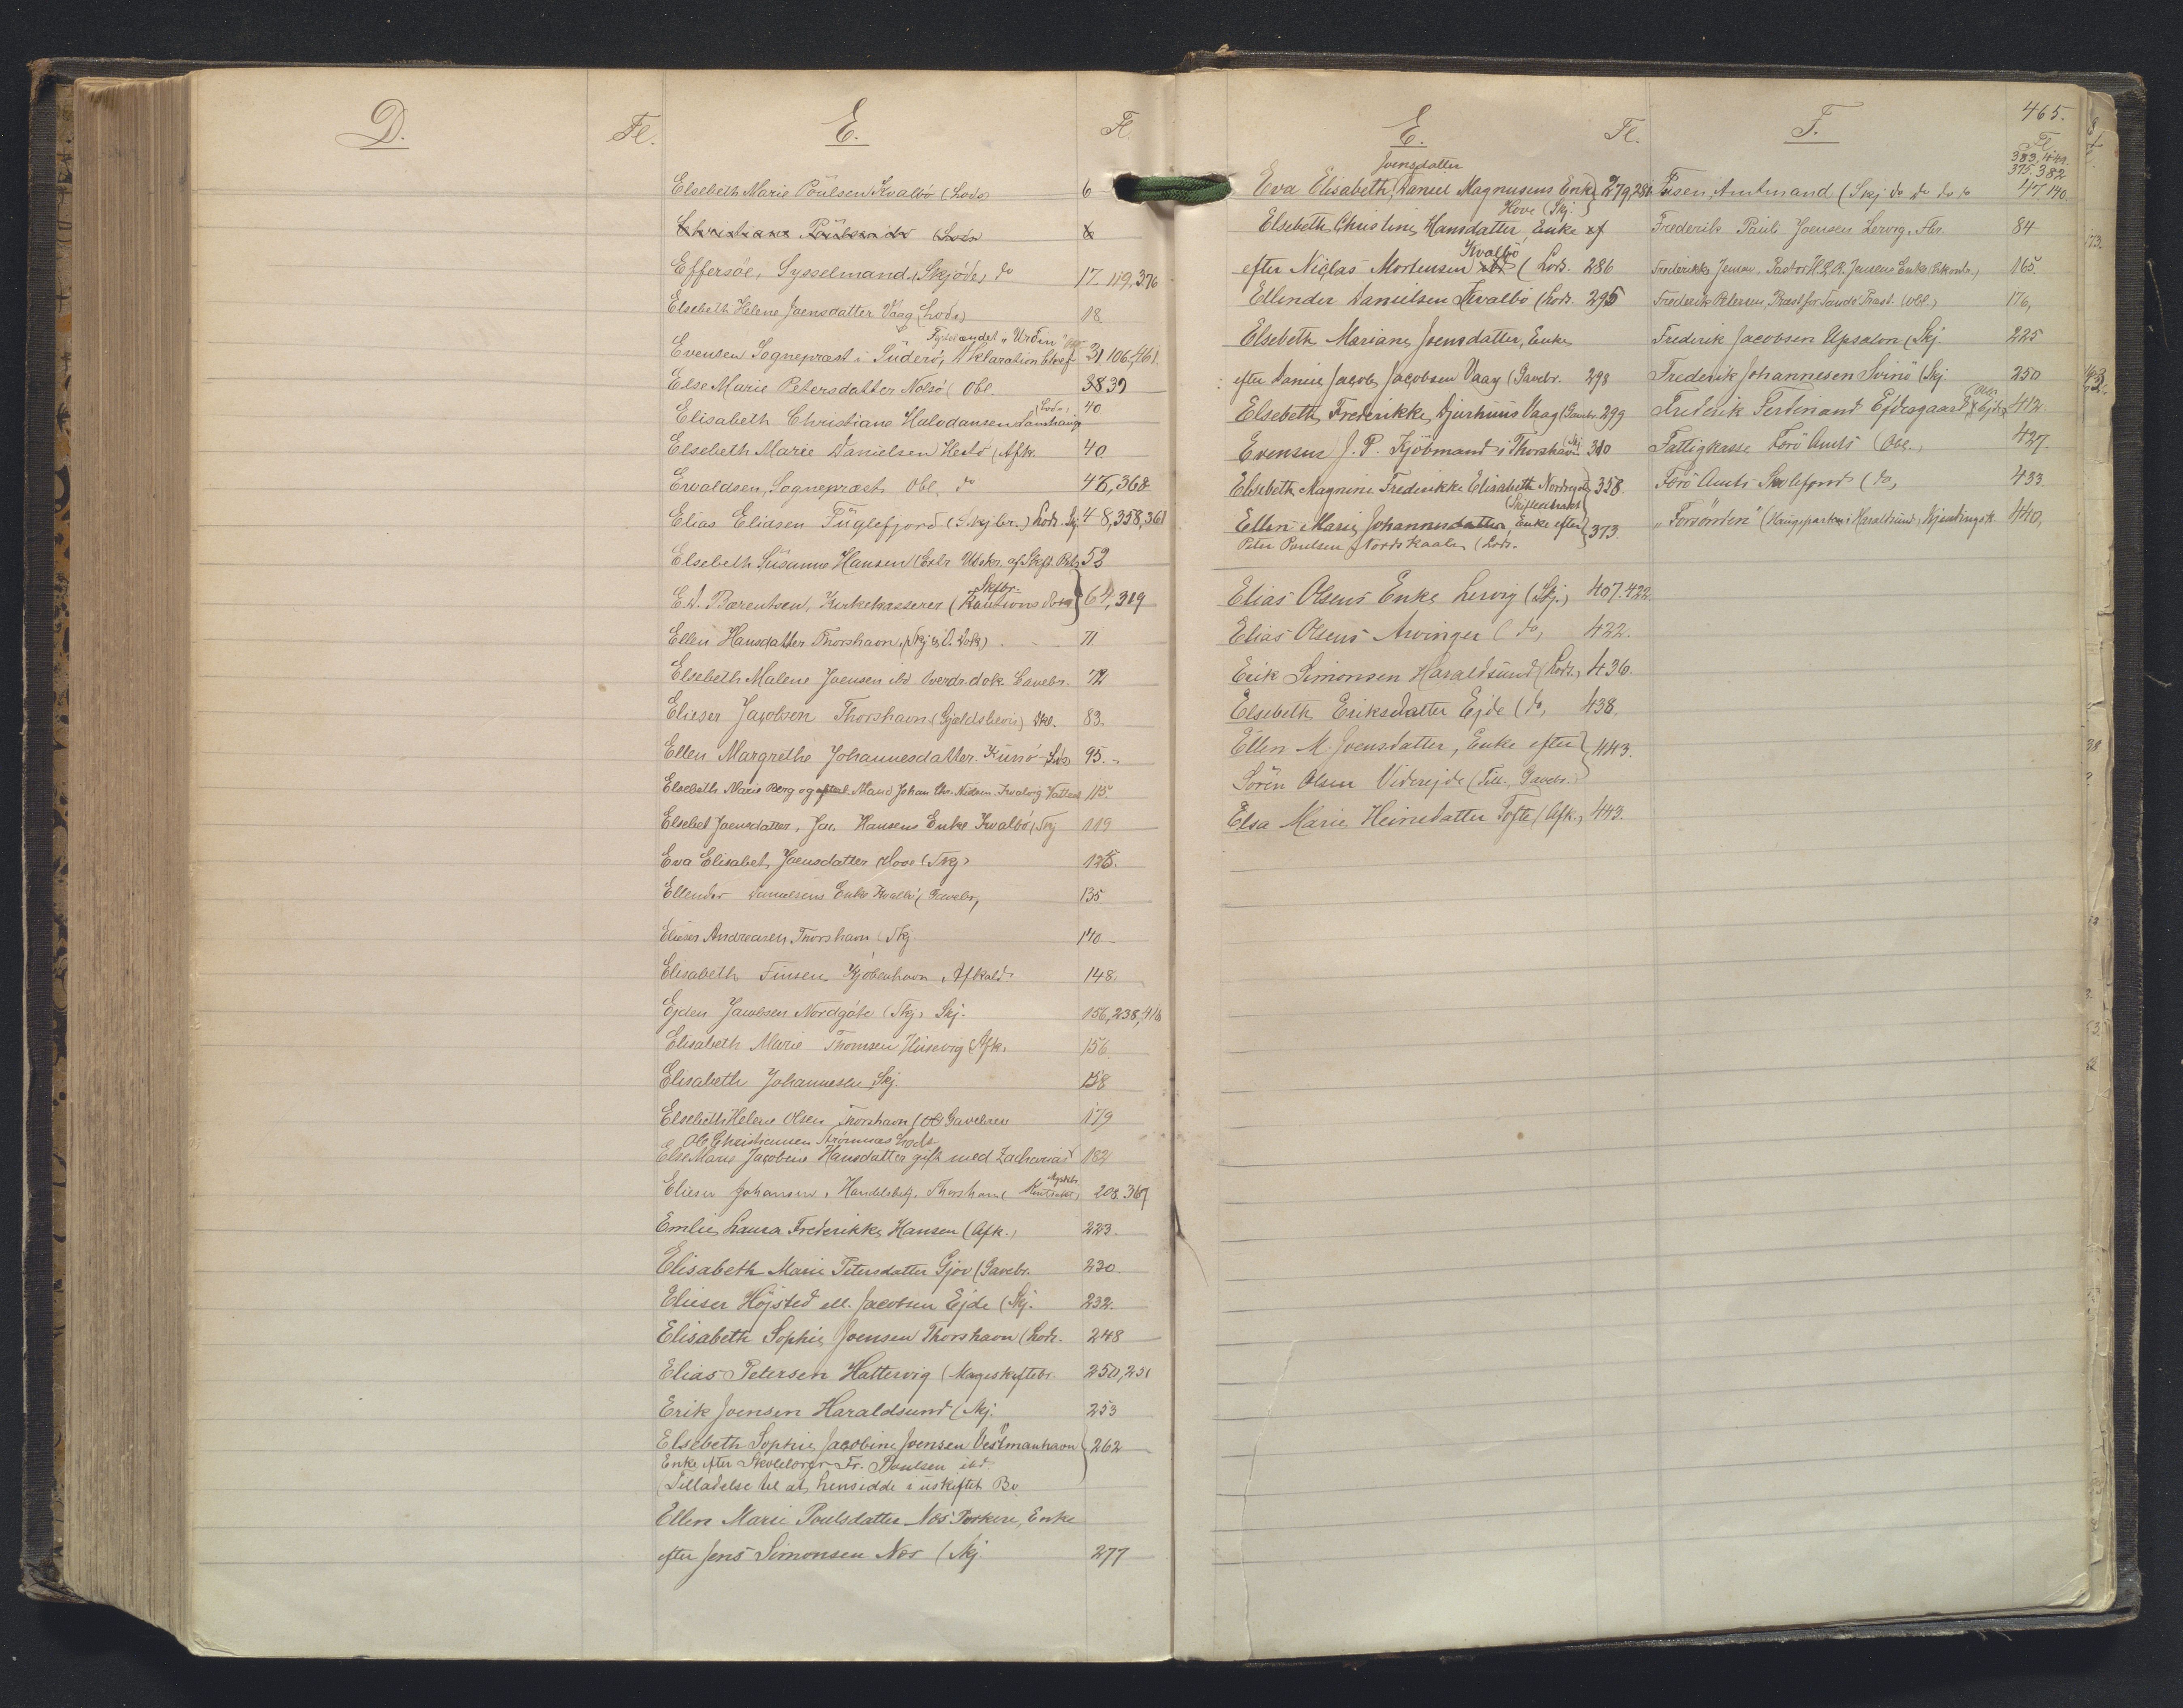 D.
Fl.
E.
Fl.
Elsebeth Marie Poulsen Kvalbö (Lods) 6
Christiane Poulsen do (Lods) 6
Effersöe, Sysselmand. (Skjöde, do 17. 119, 376
Elsebeth Helene Joensdatter Vaag (Lods) 18
Fuglelandet "Urdin"
Evensen Sognepræst i Suderö, Deklaration 31. 106, 461
Else Marie Petersdatter Nolsö (Obl. 38 39
Elisabeth Christiane Halvdansen (Lods) 40
Elsebeth Marie Danielsen Hestö (Afk. 40
Ewaldsen, Sognepræst, Obl. do 46, 368
Elias Eliasen Fuglefjord (Skjbr.) Lods. Skj 48, 358, 361
Elsebeth Susanne Hansen (Extr. Udskr. af Skift. Prot. 52
Skftbr.
E. A. Bærentsen, Kirkekasserer (Kautions 64, 319
Ellen Hansdatter Thorshavn, 71
Elsebeth Malene Joensen ibd Overdr. dok. Gavebr. 72
Elieser Jacobsen Thorshavn (Gjældsbevis) Skl. 83.
Ellen Margrethe Johannesdatter. Kunö Lods 95.
Elsebeth Marie Berg og Mand Johan Chr. Nielsen. 115.
Elsebet Joensdatter, Jac. Hansens Enke Kvalbö (Skj 119
Eva Elisabet Joensdatter Hove (Skj) 125.
Ellender Danielsens Enke Kvalbö (Gavebr, 135
Elieser Andreasen Thorshavn (Skj. 140
Elisabeth Finsen Kjöbenhavn Afkald 148.
Ejden Jacobsen Nordgöte (Skj, Skj. 156, 238, 418
Elisabeth Marie Thomsen Husevig (Afk. 156
Elisabeth Johannesen Skj. 158
Elsebeth Helene Olsen Thorshavn (Obl Gavebrev 179
Ole Christiansen Strömnæs Lods
Else Marie Jacobine Hansdatter gift med Zacharias 182
Elieser Johansen, Handelsbetj. Thorshavn (Kontrakt, 208. 367
Emilie Laura Frederikke Hansen (Afk., 223.
Elisabeth Marie Petersdatter Gjov (Gavebr. 230
Elieser Höjsted ell. Jacobsen Ejde (Skj. 232.
Elisabeth Sophie Joensen Thorshavn (Lods. 248
Elias Petersen Hattervig (Mageskiftebr. 250, 251
Erik Joensen Haraldsund (Skj. 253
Elsebeth Sophie Jacobine Joensen Vestmanhavn 262
Enke efter Skolelærer Fr. Poulsen ibd.
(Tilladelse til at hensidde i uskiftet Bo
Ellen Marie Poulsdatter Næs Porkere, Enke
efter Jens Simonsen Næs (Skj. 277
E.
Fl.
Joensdatter
Eva Elisabeth, Daniel Magnusens Enke 279, 281
Hove (Skj.
Elsebeth Christine Hansdatter, Enke
Kvalbö
efter Niclas Mortensen (Lods. 286
Ellender Danielsen Kvalbö (Lods. 295
Elsebeth Mariane Joensdatter, Enke
efter Daniel Jacob Jacobsen Vaag (Gavebr. 298
Elsebeth Frederikke Djurhuus Vaag (Gavebr. 299
Evensen J. P. Kjöbmand i Thorshavn (Skj. 310
Elisebeth Magnine Frederikke Elisabeth 358.
(Skifteextrakt
Ellen Marie Johannesdatter, Enke efter 373.
Peter Poulsen, Nordskaale (Lods.
Elias Olsens Enke Lervig (Skj., 407. 422
Elias Olsens Arvinger (do, 422.
Erik Simonsen Haraldsund (Lods., 436.
Elsebeth Eriksdatter Ejde (do, 438.
Ellen M. Joensdatter, Enke efter 443.
Sören Olsen Viderejde (Till. Gavebr.)
Elsa Marie Heinesdatter Tofte (Afk., 443.
F.
465.
Fl.
375, 382
Finsen, Amtmand (Skj do do do 47 140.
Frederik Pauli Joensen Lervig. 84
Frederikke Jensen, Pastor H. L. R. Jensens Enke 165.
Frederik Petersen, Præst for Sandö Præst. (Obl.) 176,
Frederik Jacobsen Upsalon (Skj. 225
Frederik Johannesen Svinö (Skj. 250
Frederik Ferdinand Ejdesgaard (Obl. 412.
Fattigkasse Færö Amts (Obl., 427.
Færö Amts Skolefond (do, 433.
"Forsörden" (Haugeparten i Haraldsund, 440,